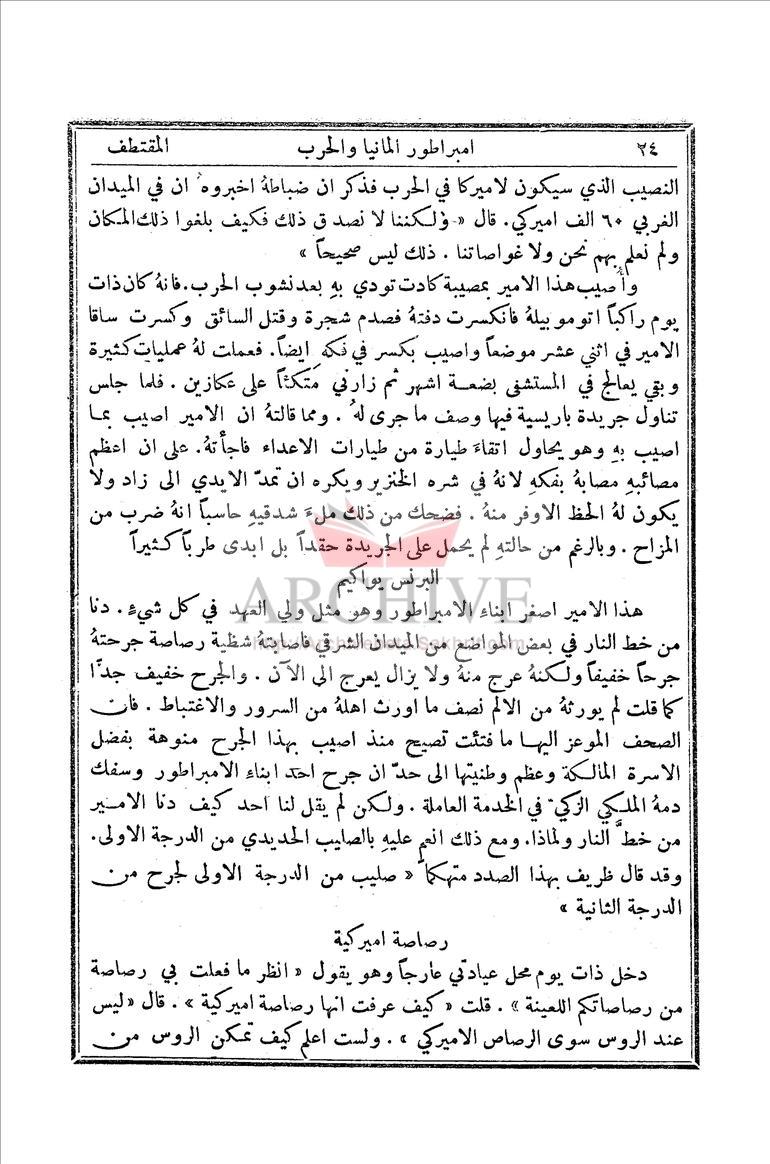 ٢٤ امبراطور المانيا والحرب المقتطف
النصيب الذي سيكون لاميركا في الحرب فذكر ان ضباطهُ اخبروهُ ان في الميدان
الغربي ٦٠ الف اميركي. قال «ولكننا لا نصدق ذلك فكيف بلغوا ذلك المكان
ولم نعلم بهم نحن ولا غواصاتنا . ذلك ليس صحيحاً »
وأُصيب هذا الامير بمصيبة كادت تودي بهِ بعد نشوب الحرب. فانهُ كان ذات
يوم راكباً اتوموبيلهُ فانكسرت دفتهُ فصدم شجرة وقتل السائق وكسرت ساقا
الامير في اثني عشر موضعاً واصيب بكسر في فكهِ ايضاً. فعملت لهُ عمليات كثيرة
وبقي يعالج في المستشفى بضعة اشهر ثم زارني متكئاً على عكازين . فلما جلس
تناول جريدة باريسية فيها وصف ما جرى لهُ . ومما قالتهُ ان الامير اصيب بما
اصيب بهِ وهو يحاول اتقاء طيارة من طيارات الاعداء فاجأتهُ. على ان اعظم
مصائبهِ مصابهُ بفكهِ لانهُ في شره الخنزير ويكره ان تمدّ الايدي الى زاد ولا
يكون لهُ الحظ الاوفر منهُ . فضحك من ذلك ملءَ شدقيهِ حاسباً انهُ ضرب من
المزاح . وبالرغم من حالتهِ لم يحمل على الجريدة حقداً بل ابدى طرباً كثيراً
البرنس يواكيم
هذا الامير اصغر ابناء الامبراطور وهو مثل ولي العهد في كل شيءٍ. دنا
من خط النار في بعض المواضع من الميدان الشرقي فاصابتهُ شظية رصاصة جرحتهُ
جرحاً خفيفاً ولكنهُ عرج منهُ ولا يزال يعرج الى الآن . والجرح خفيف جدًّا
كما قلت لم يورثهُ من الالم نصف ما اورث اهلهُ من السرور والاغتباط . فان
الصحف الموعز اليها ما فتئت تصيح منذ اصيب بهذا الجرح منوهة بفضل
الاسرة المالكة وعظم وطنيتها الى حدّ ان جرح احد ابناءِ الامبراطور وسفك
دمهُ الملكي الزكيّ في الخدمة العاملة . ولكن لم يقل لنا احد كيف دنا الامير
من خطّ النار ولماذا. ومع ذلك انعم عليهِ بالصليب الحديدي من الدرجة الاولى.
وقد قال ظريف بهذا الصدد متهكماً « صليب من الدرجة الاولى لجرح من
الدرجة الثانية »
رصاصة اميركية
دخل ذات يوم محل عيادتي عارجاً وهو يقول « انظر ما فعلت بي رصاصة
من رصاصاتكم اللعينة » . قلت « كيف عرفت انها رصاصة اميركية » . قال «ليس
عند الروس سوى الرصاص الاميركي » . ولست اعلم كيف تمكن الروس من
ARCHIVE